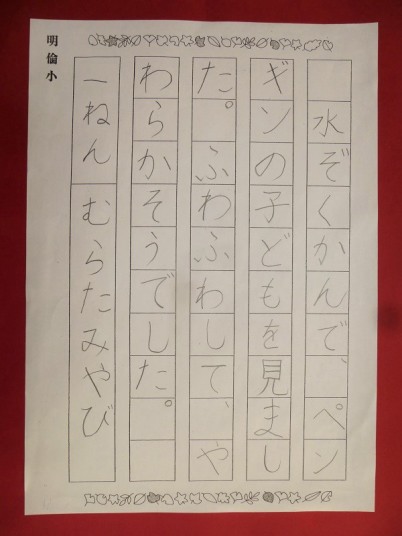 水ぞくかんで、ペン
ギンの子どもを見まし
た。ふわふわして、や
わらかそうでした。
一ねん むらたみやび
明倫小